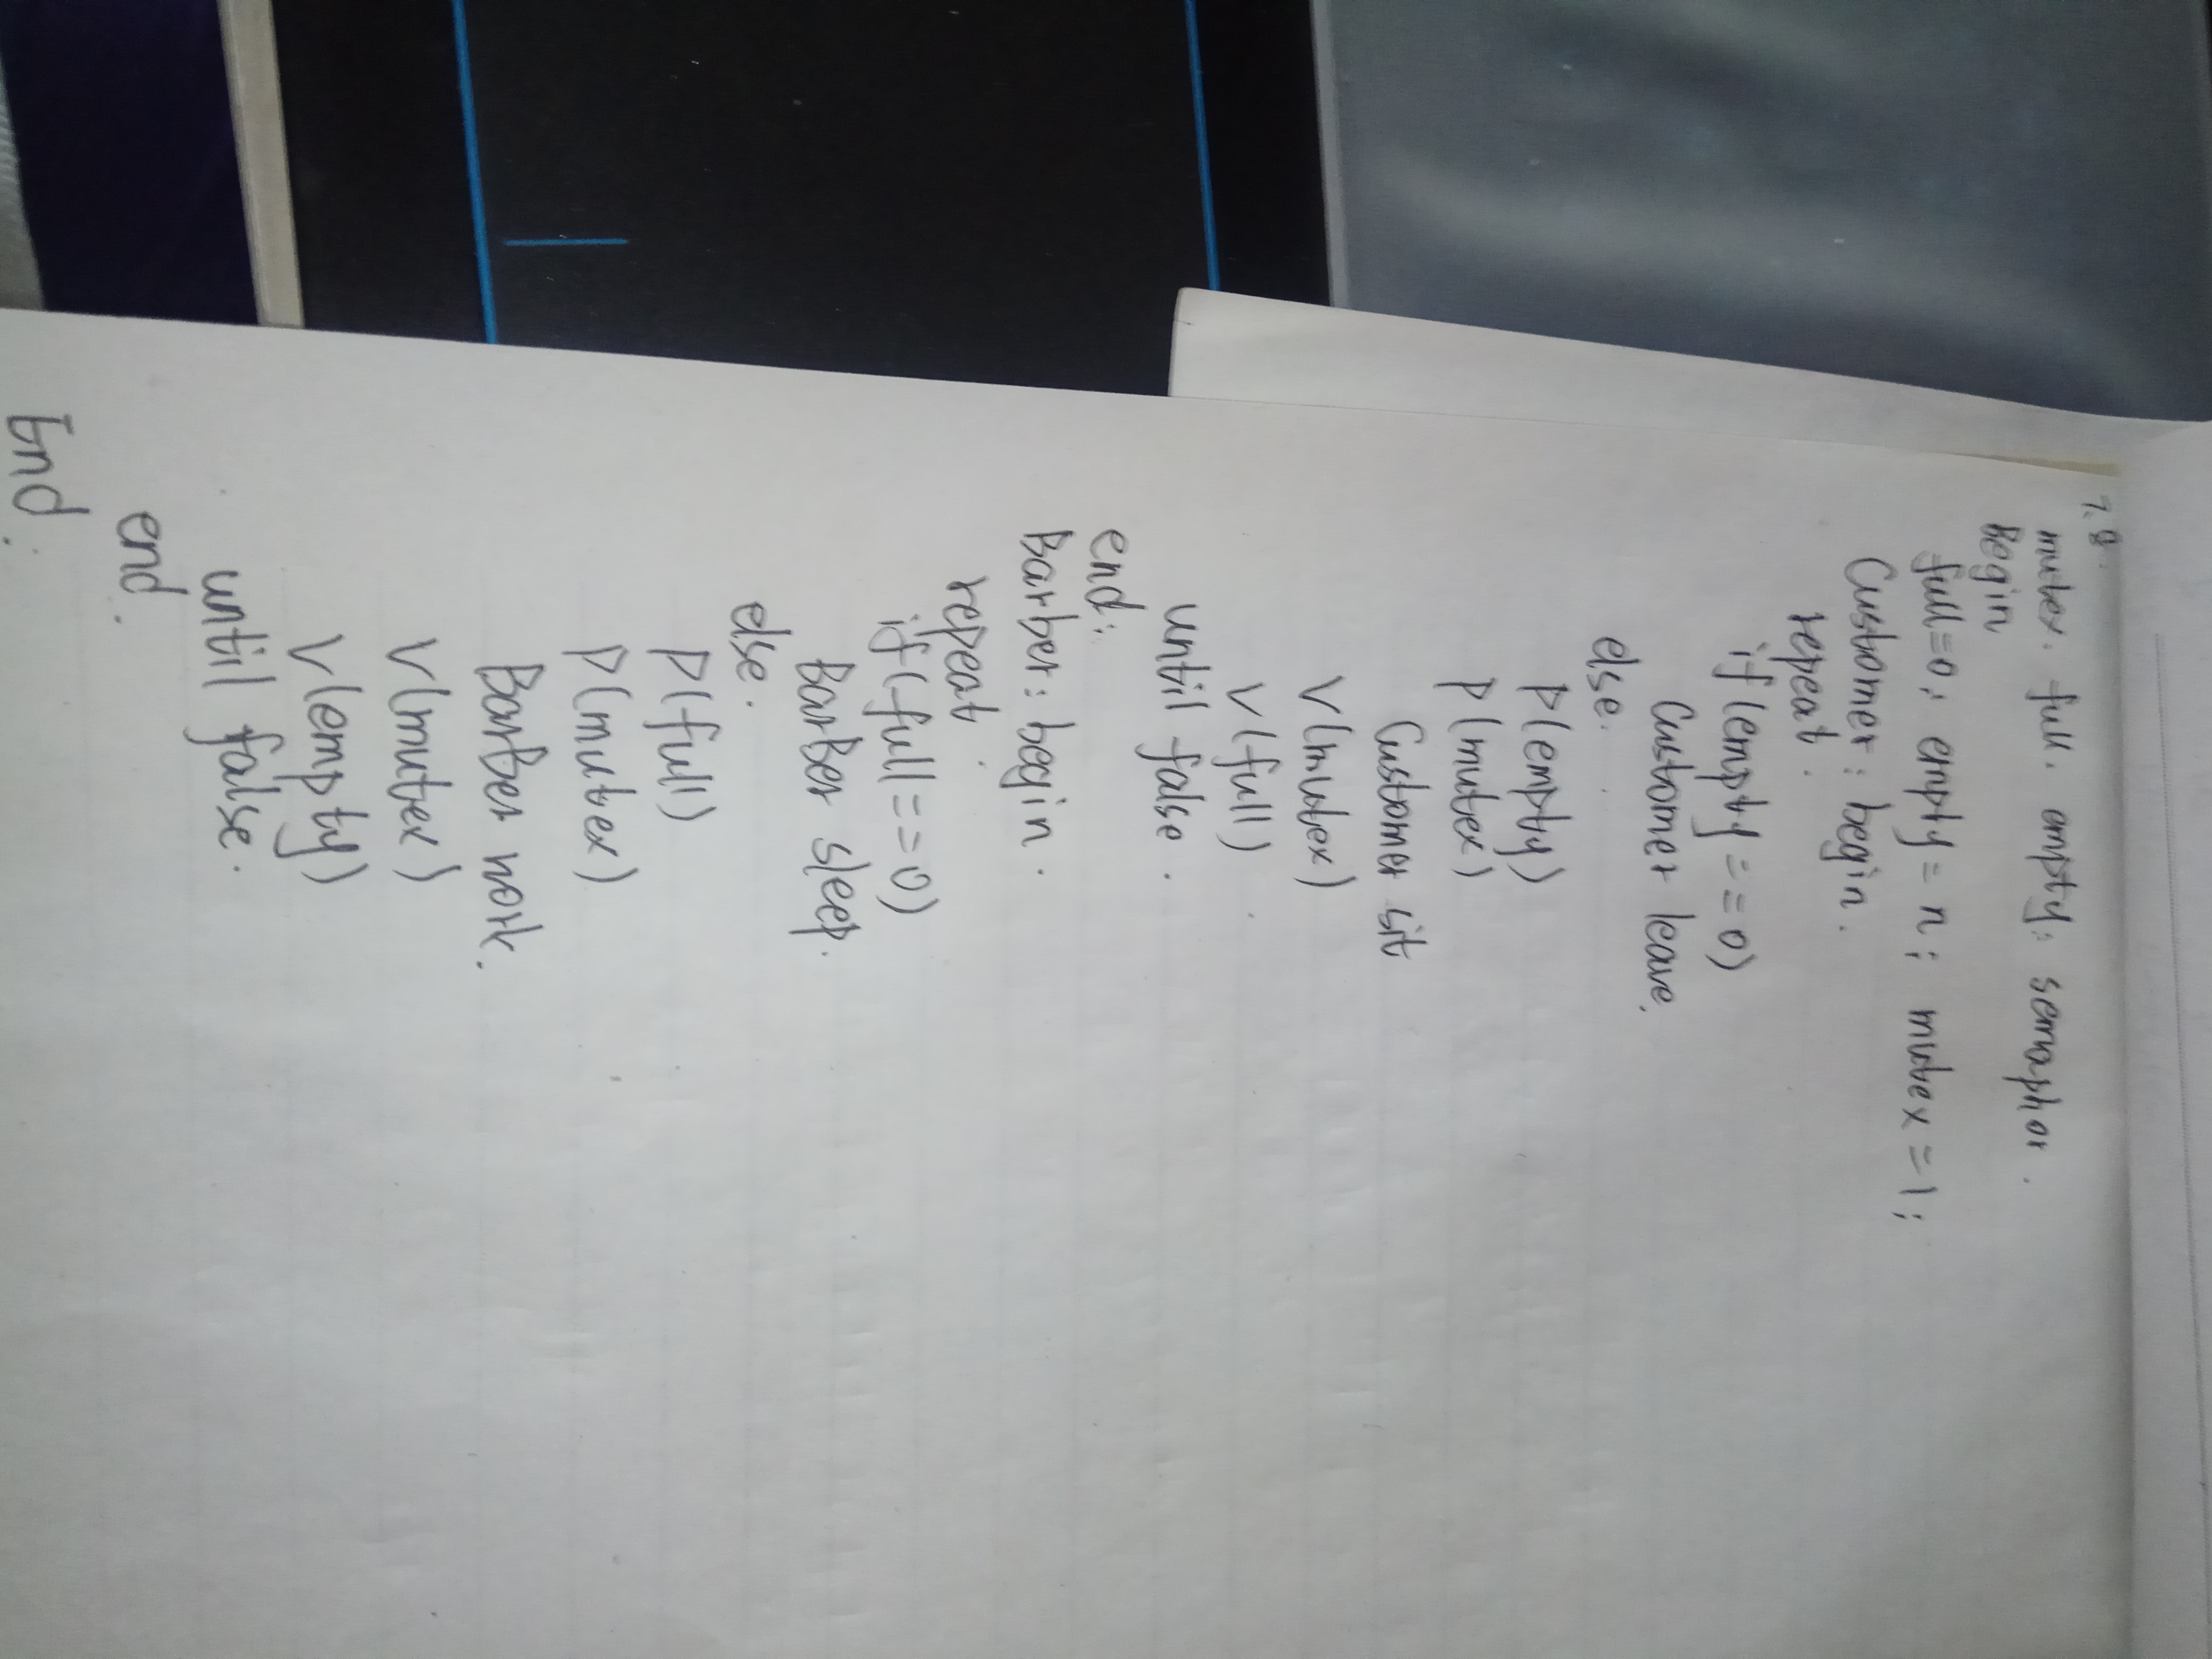 7.8.
mutex. full. empty: semaphor.
Begin
full=0; empty=n; mutex=1;
Customer: begin.
repeat.
if(empty==0)
Customer leave.
else.
P(empty)
P(mutex)
Customer sit
V(mutex)
V(full)
until false.
end:
Barber: begin.
repeat
if(full==0)
BarBer sleep.
else.
P(full)
P(mutex)
BarBer work.
V(mutex)
V(empty)
until false.
end.
End.